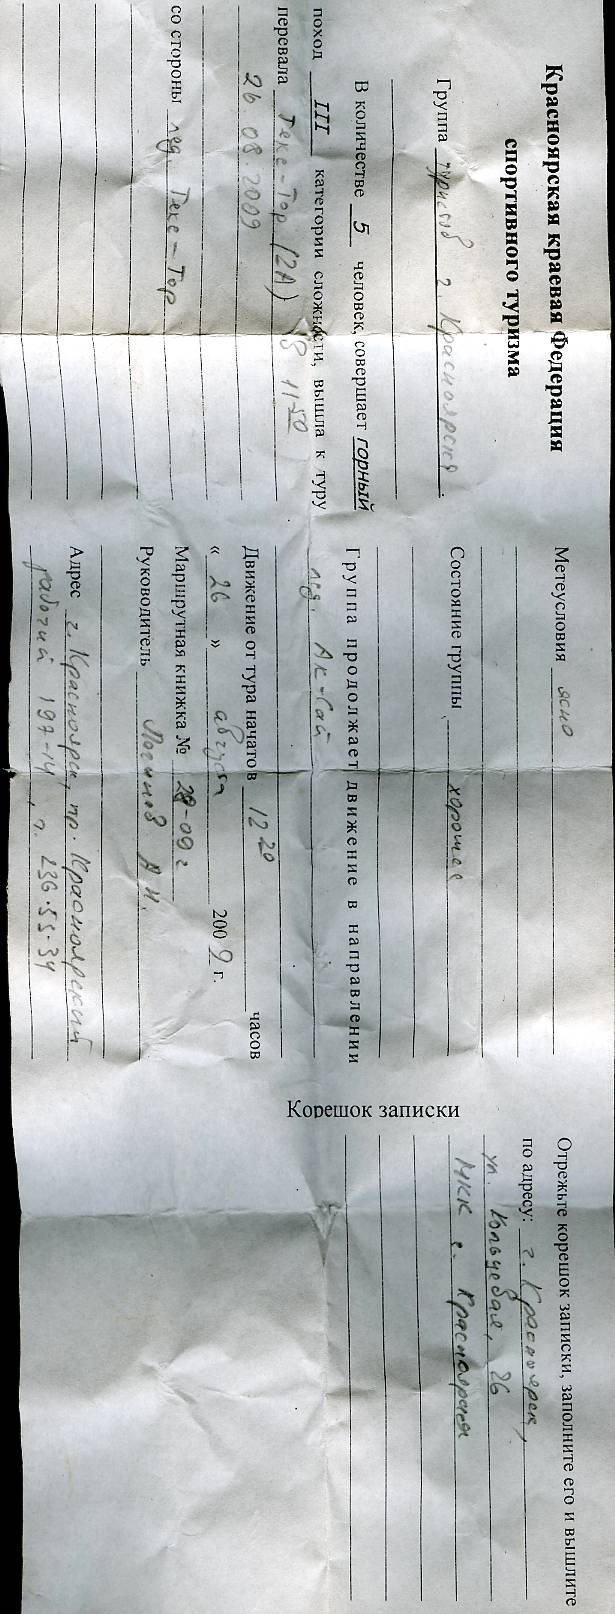 Красноярская краевая Федерация
спортивного туризма
Группа туристов г. Красноярска.
В количестве 5 человек, совершает горный
поход III категории сложности, вышла к туру
перевала Теке-Тор (2А) В 11-50
26.08.2009
со стороны лед. Теке-Тор
Метеусловия ясно
Состояние группы хорошее
Группа продолжает движение в направлении
лед. Ак-Сай
Движение от тура начато в 12 20 часов
« 26 » августа 2009 г.
Маршрутная книжка № 28-09 г
Руководитель Логинов А.И.
Адрес г. Красноярск, пр. Красноярский
рабочий 197-14, т. 236-55-34
Корешок записки
Отрежьте корешок записки, заполните его и вышлите
по адресу: г. Красноярск,
ул. Кольцевая, 26
МКК г. Красноярска